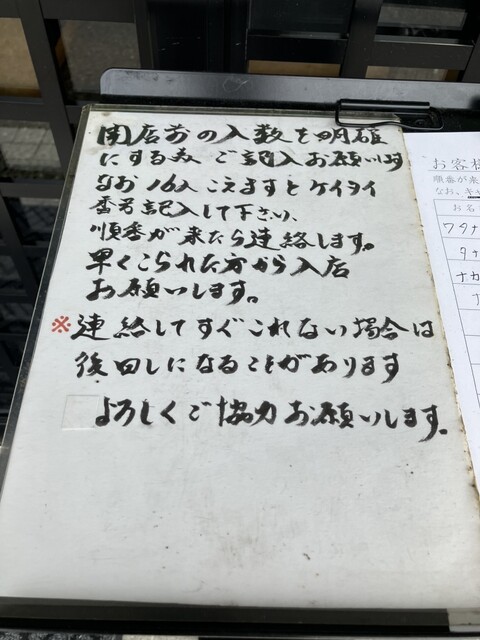 開店前の人数を明確
にする為、ご記入お願いします
なお16人こえますとケイタイ
番号記入して下さい、
順番が来たら連絡します。
早くこられた方から入店
お願いします。
※連絡してすぐこれない場合は
後回しになることがあります
よろしくご協力お願いします。
お客様
順番が来
なお、キャ
お名
ワタナ
タナ
ナカ